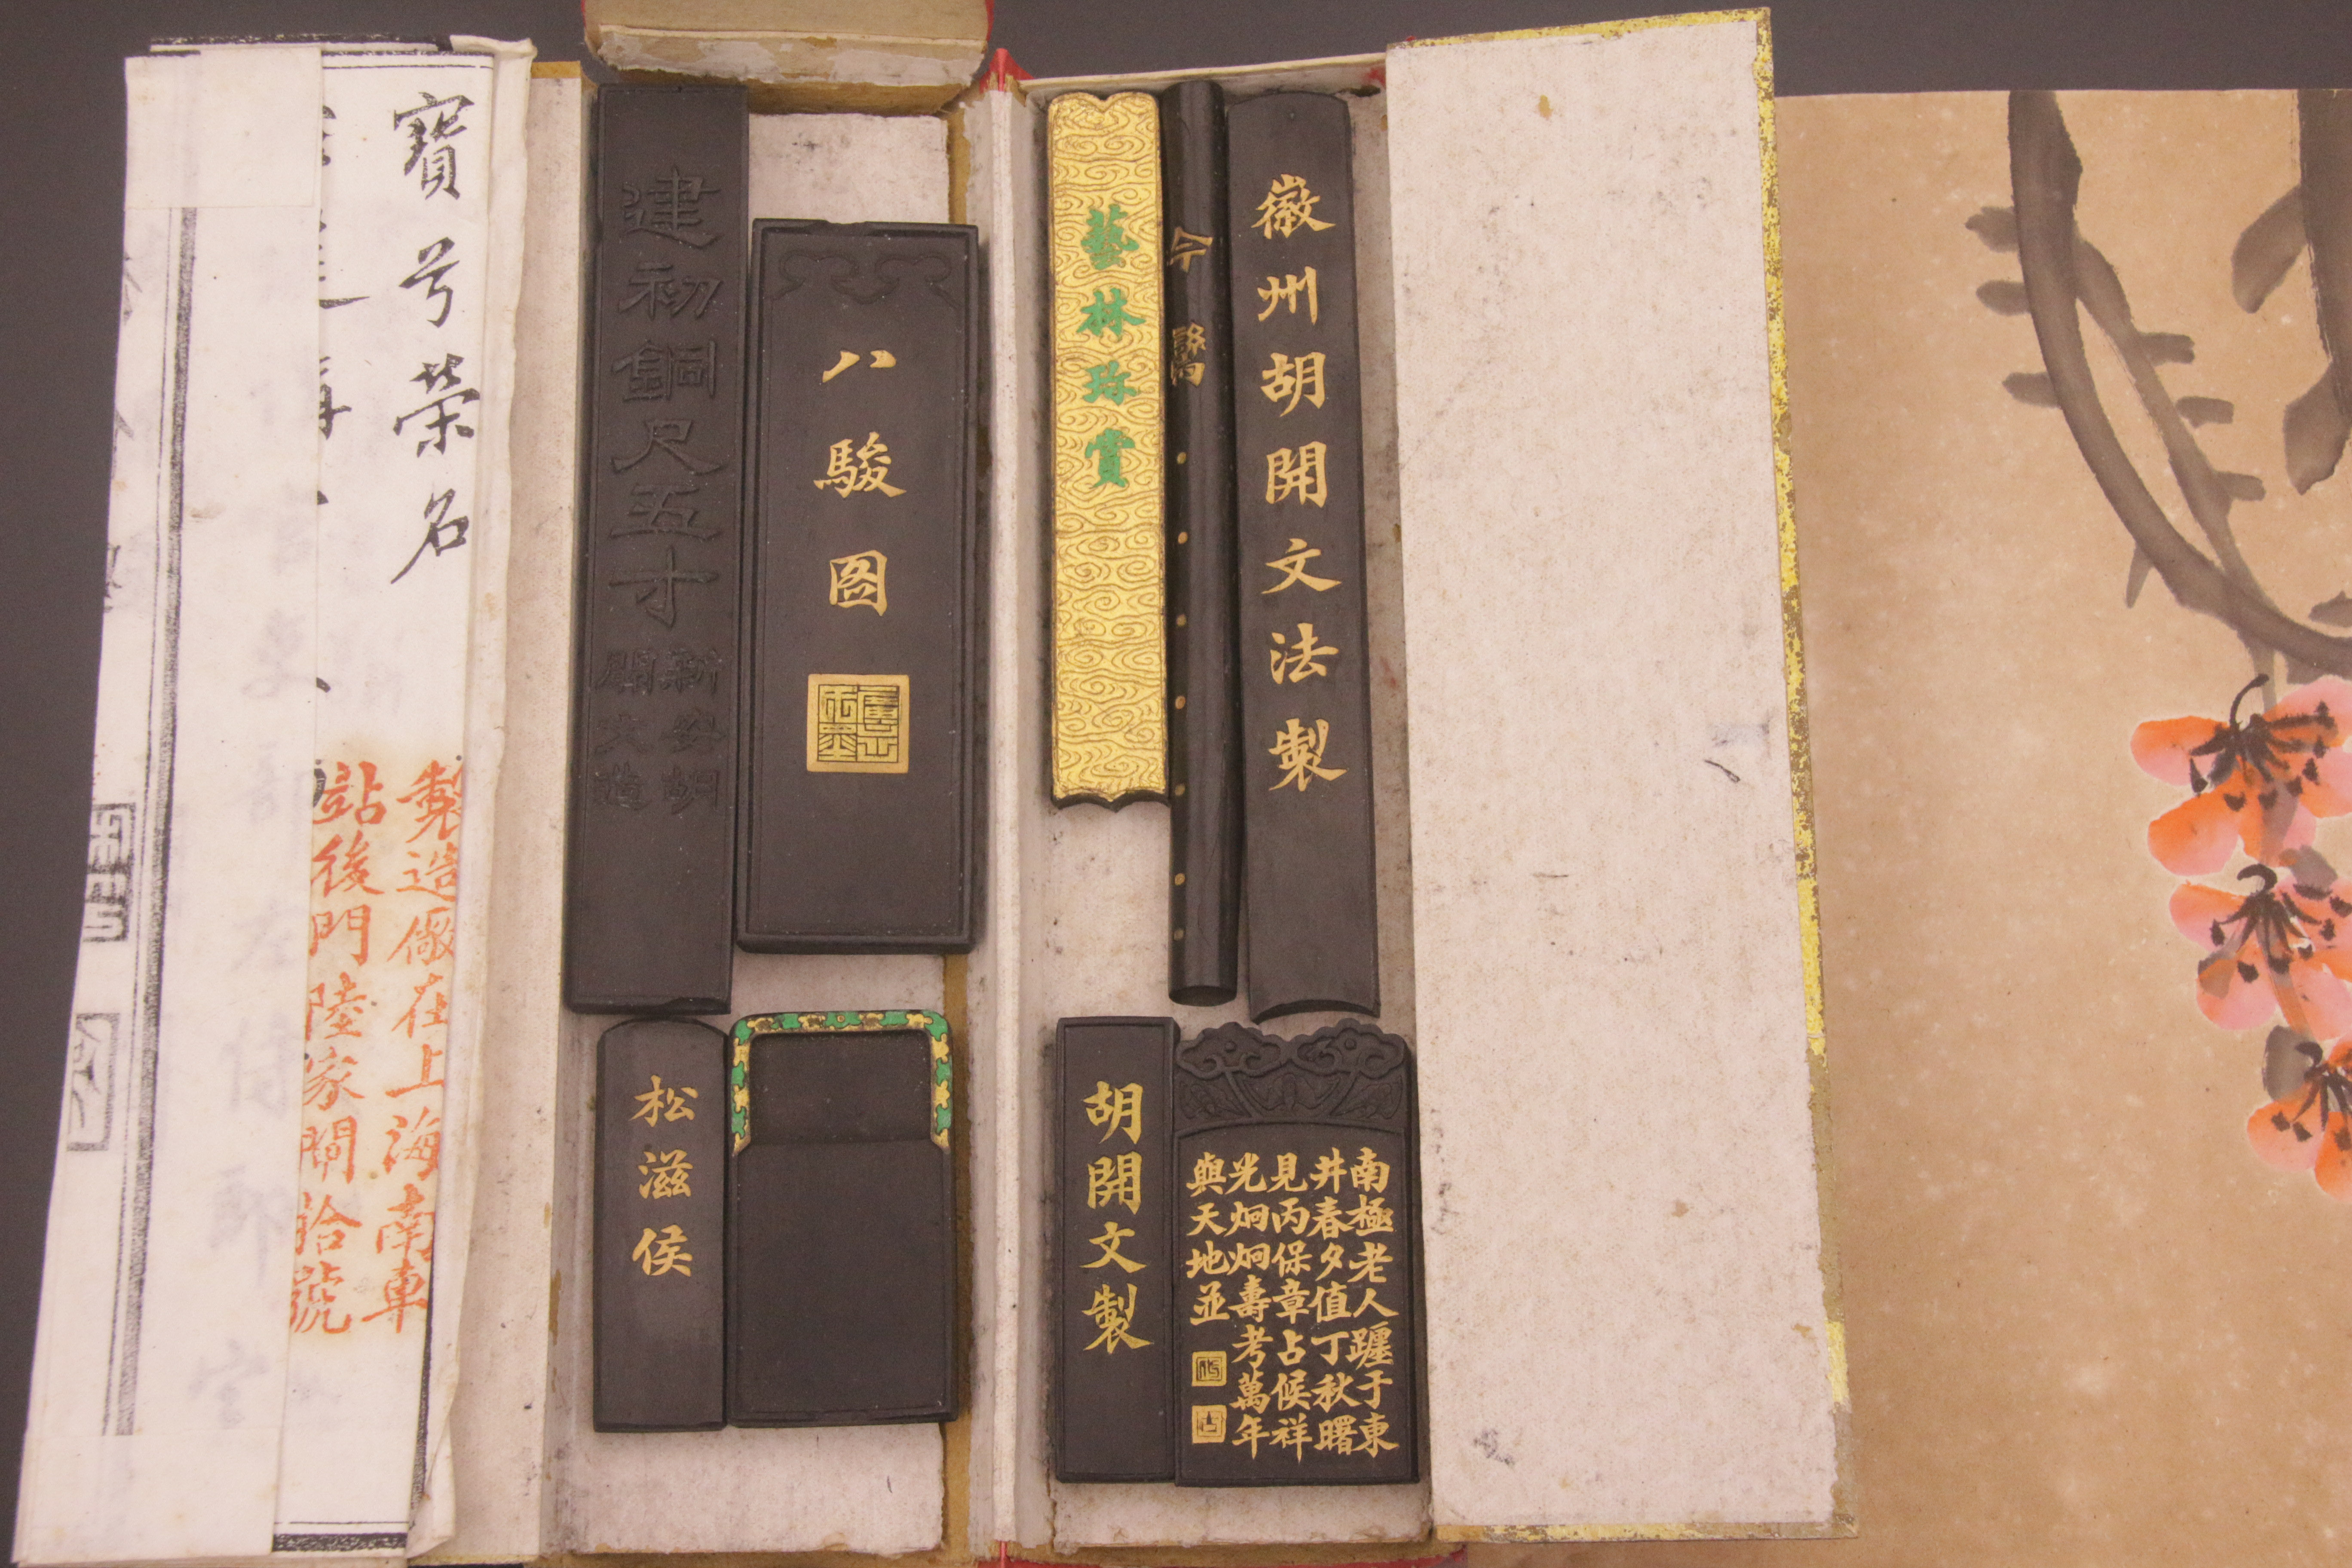 寶兮榮名
製造廠在上海南車
跕後門陸家閘拾號
建初銅尺五寸
新安胡
開文造
八駿图
黃山
松滋侯
藝林珍賞
今
徽州胡開文法製
胡開文製
南極老人躔于東
井春夕值丁秋曙
見丙保章占候祥
光炯炯壽考萬年
與天地並